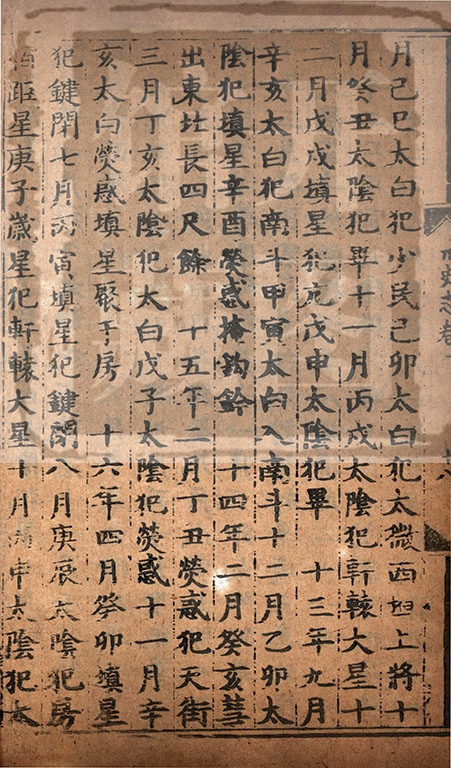 月己巳太白犯少民己卯太白犯太微西垣上將十
月癸丑太陰犯畢十一月丙戌太陰犯軒轅大星十
二月戊戌填星犯亢戊申太陰犯畢　十三年九月
辛亥太白犯南斗甲寅太白入南斗十二月乙卯太
陰犯填星辛酉熒惑掩鈎鈐　十四年二月癸亥彗
出東北長四尺餘　十五年二月丁丑熒惑犯天街
三月丁亥太陰犯太白戊子太陰犯熒惑十一月辛
亥太白熒惑填星聚于房　十六年四月癸卯填星
犯鍵閉七月丙寅填星犯鍵閉八月庚辰太陰犯房
距星庚子歲星犯軒轅大星十月申太陰犯太